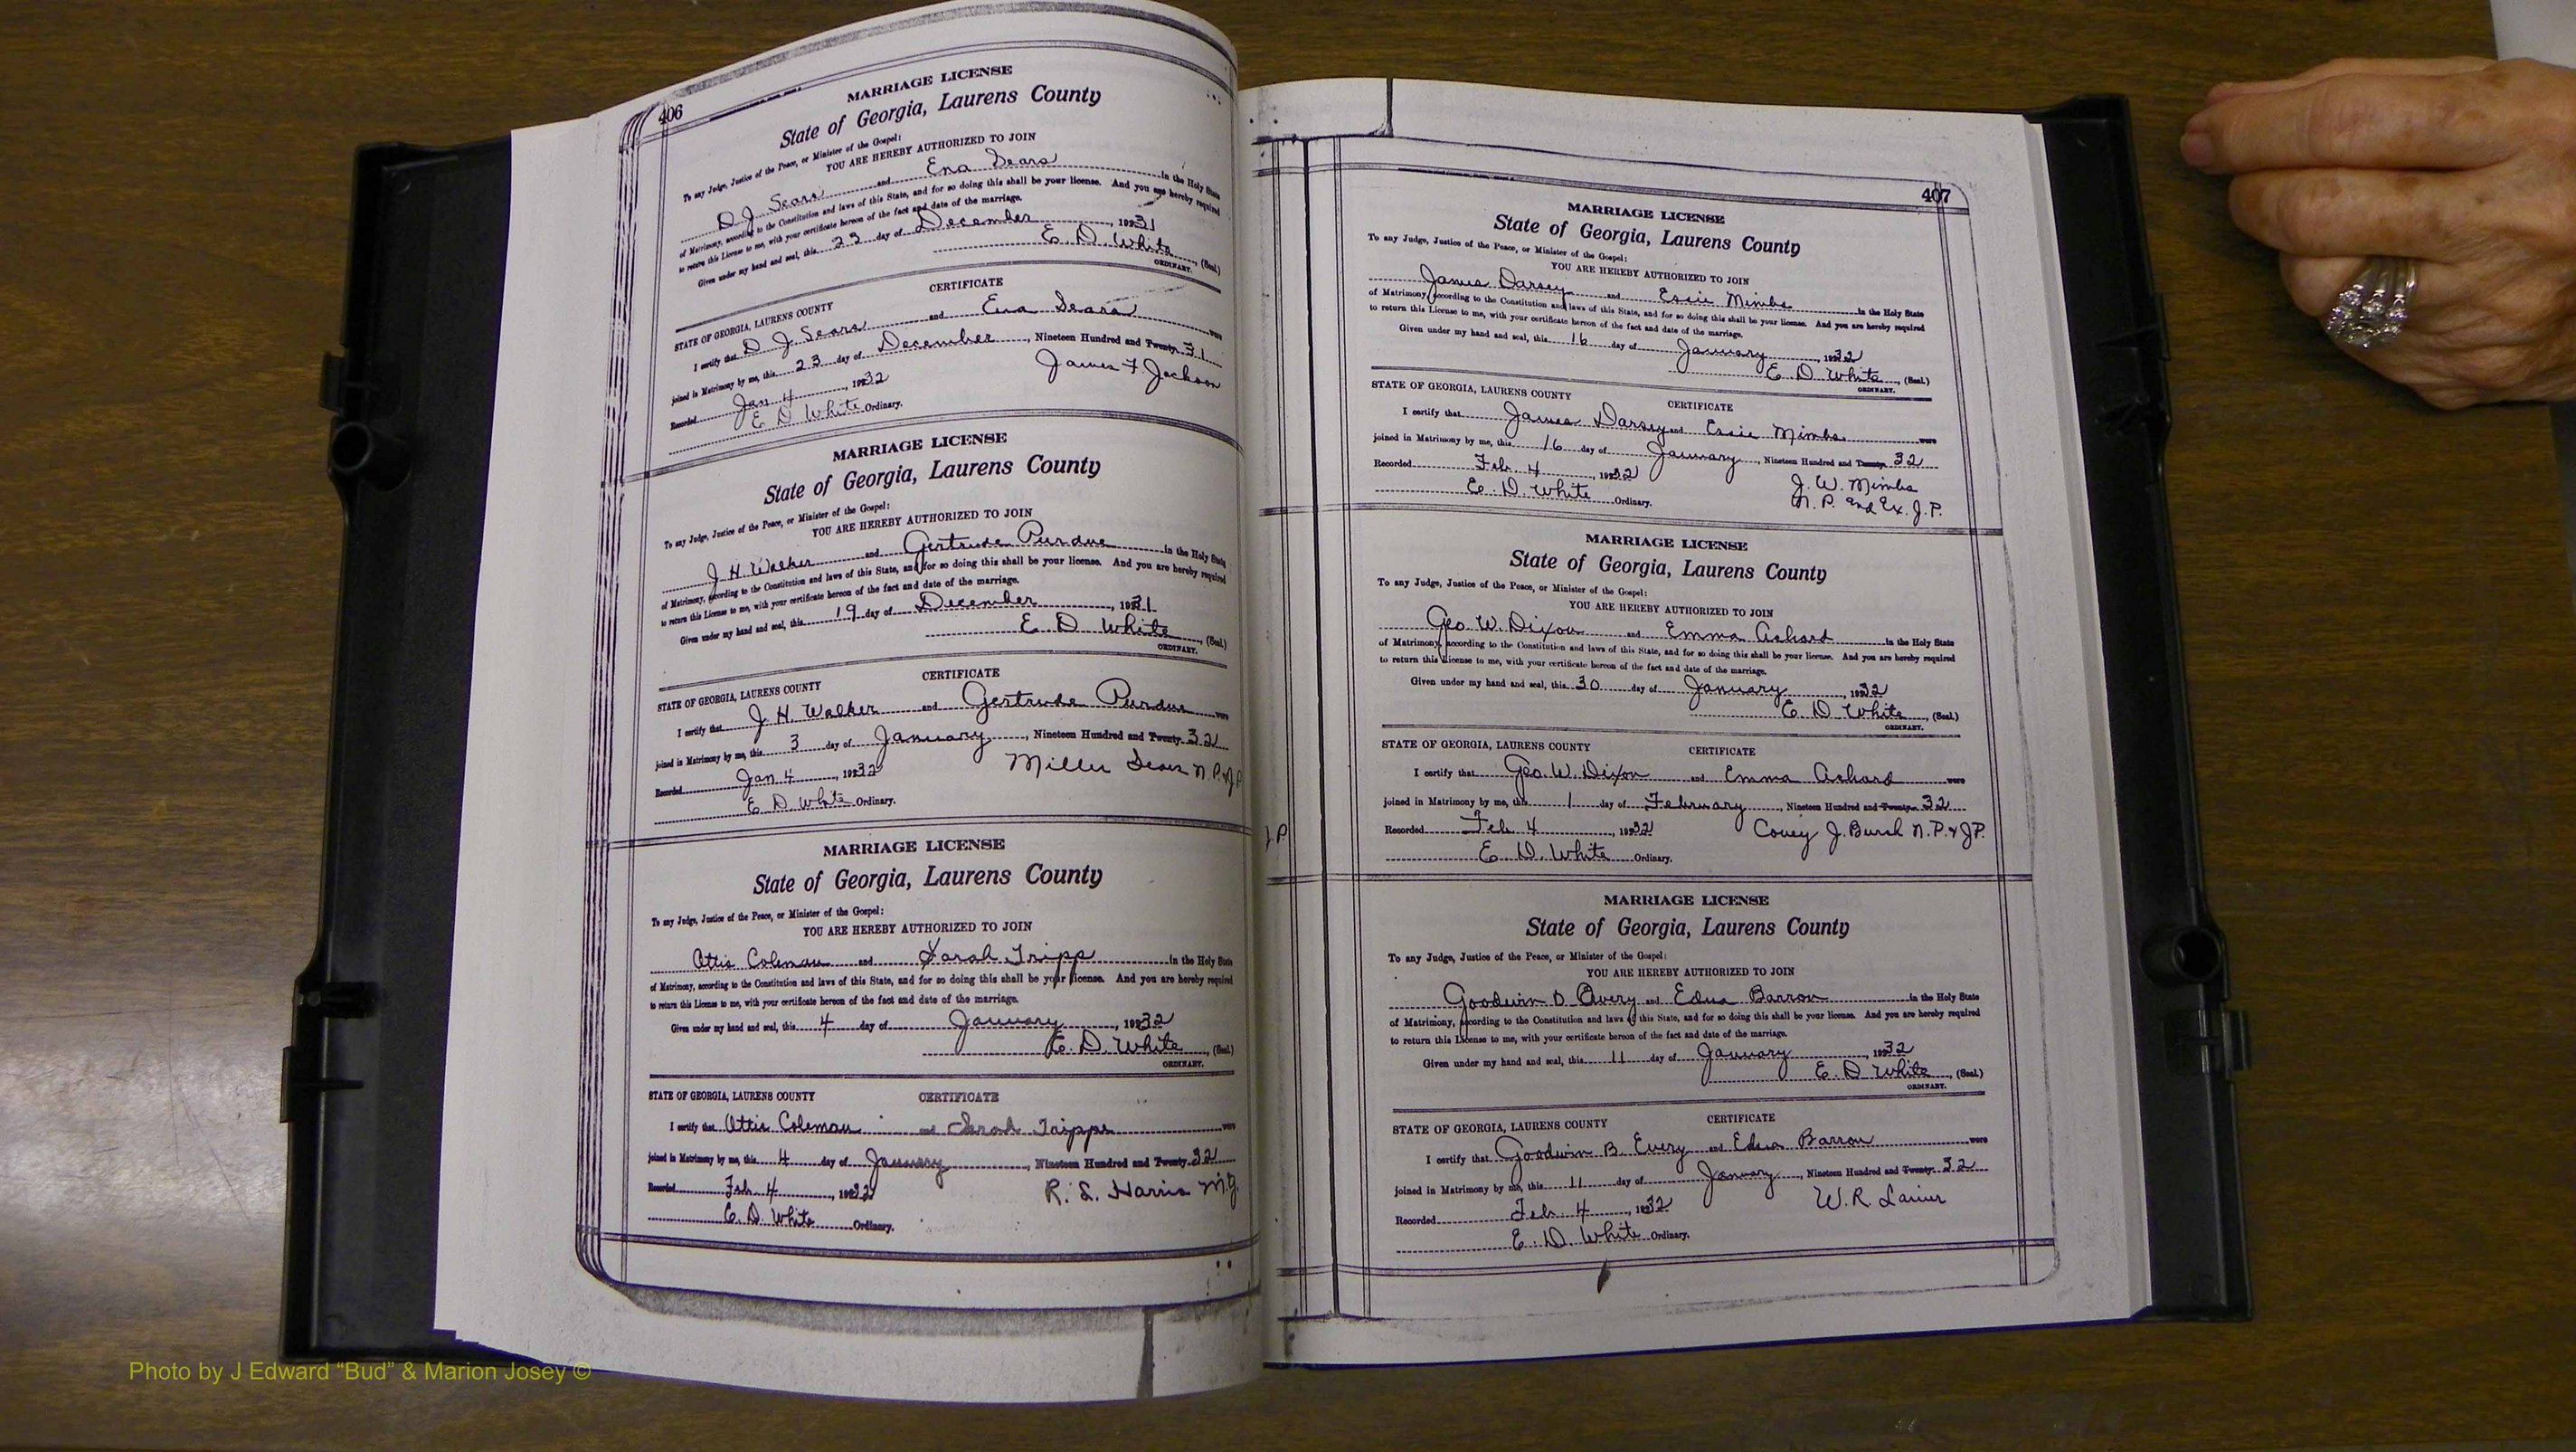 406
MARRIAGE LICENSE
State of Georgia, Laurens County
To any Judge, Justice of the Peace, or Minister of the Gospel:
YOU ARE HEREBY AUTHORIZED TO JOIN
D. J. Sears and Ena Sears in the Holy State
of Matrimony, according to the Constitution and laws of this State, and for so doing this shall be your license. And you are hereby required
to return this License to me, with your certificate hereon of the fact and date of the marriage.
Given under my hand and seal, this 23 day of December, 1931
E. D. White, (Seal)
ORDINARY.
CERTIFICATE
STATE OF GEORGIA, LAURENS COUNTY
I certify that D. J. Sears and Ena Sears were
joined in Matrimony by me, this 23 day of December, Nineteen Hundred and Twenty 31
Recorded Jan 4, 1932 James F. Jackson
E D White Ordinary.
MARRIAGE LICENSE
State of Georgia, Laurens County
To any Judge, Justice of the Peace, or Minister of the Gospel:
YOU ARE HEREBY AUTHORIZED TO JOIN
J. H. Walker and Gertrude Purdue in the Holy State
of Matrimony, according to the Constitution and laws of this State, and for so doing this shall be your license. And you are hereby required
to return this License to me, with your certificate hereon of the fact and date of the marriage.
Given under my hand and seal, this 19 day of December, 1931
E. D. White, (Seal)
ORDINARY.
CERTIFICATE
STATE OF GEORGIA, LAURENS COUNTY
I certify that J. H. Walker and Gertrude Purdue were
joined in Matrimony by me, this 3 day of January, Nineteen Hundred and Twenty 32
Recorded Jan 4, 1932 N. P. & J P
E D White Ordinary.
MARRIAGE LICENSE
State of Georgia, Laurens County
To any Judge, Justice of the Peace, or Minister of the Gospel:
YOU ARE HEREBY AUTHORIZED TO JOIN
Ottis Coleman and Sarah Tripp in the Holy State
of Matrimony, according to the Constitution and laws of this State, and for so doing this shall be your license. And you are hereby required
to return this License to me, with your certificate hereon of the fact and date of the marriage.
Given under my hand and seal, this 4 day of January, 1932
E. D. White, (Seal)
ORDINARY.
STATE OF GEORGIA, LAURENS COUNTY CERTIFICATE
I certify that Ottis Coleman and Sarah Tripps were
joined in Matrimony by me, this 4 day of January, Nineteen Hundred and Twenty 32
Recorded Feb 4, 1932 R. L. Harris M.G.
E. D. White Ordinary.
J.P
407
MARRIAGE LICENSE
State of Georgia, Laurens County
To any Judge, Justice of the Peace, or Minister of the Gospel:
YOU ARE HEREBY AUTHORIZED TO JOIN
James Darsey and Essie Mimbs in the Holy State
of Matrimony, according to the Constitution and laws of this State, and for so doing this shall be your license. And you are hereby required
to return this License to me, with your certificate hereon of the fact and date of the marriage.
Given under my hand and seal, this 16 day of January, 1932
E. D. White, (Seal.)
ORDINARY.
STATE OF GEORGIA, LAURENS COUNTY CERTIFICATE
I certify that James Darsey and Essie Mimbs were
joined in Matrimony by me, this 16 day of January, Nineteen Hundred and Twenty 32
Recorded Feb. 4, 1932 J. W. Mimbs
E. D. White Ordinary. N. P. and Ex. J. P.
MARRIAGE LICENSE
State of Georgia, Laurens County
To any Judge, Justice of the Peace, or Minister of the Gospel:
YOU ARE HEREBY AUTHORIZED TO JOIN
Geo. W. Dixon and Emma Ashard in the Holy State
of Matrimony, according to the Constitution and laws of this State, and for so doing this shall be your license. And you are hereby required
to return this License to me, with your certificate hereon of the fact and date of the marriage.
Given under my hand and seal, this 30 day of January, 1932
E. D. White, (Seal.)
ORDINARY.
STATE OF GEORGIA, LAURENS COUNTY CERTIFICATE
I certify that Geo. W. Dixon and Emma Ashard were
joined in Matrimony by me, this 1 day of February, Nineteen Hundred and Twenty 32
Recorded Feb 4, 1932 J. Bursh N. P. & J P.
E. D. White Ordinary.
MARRIAGE LICENSE
State of Georgia, Laurens County
To any Judge, Justice of the Peace, or Minister of the Gospel:
YOU ARE HEREBY AUTHORIZED TO JOIN
Goodwin D. Avery and Edna Barron in the Holy State
of Matrimony, according to the Constitution and laws of this State, and for so doing this shall be your license. And you are hereby required
to return this License to me, with your certificate hereon of the fact and date of the marriage.
Given under my hand and seal, this 11 day of January, 1932
E. D White, (Seal.)
ORDINARY.
STATE OF GEORGIA, LAURENS COUNTY CERTIFICATE
I certify that Goodwin B. Every and Edna Barron were
joined in Matrimony by me, this 11 day of January, Nineteen Hundred and Twenty 32
Recorded Feb 4, 1932 W. R Lanier
E. D. White Ordinary.
Photo by J Edward “Bud” & Marion Josey ©